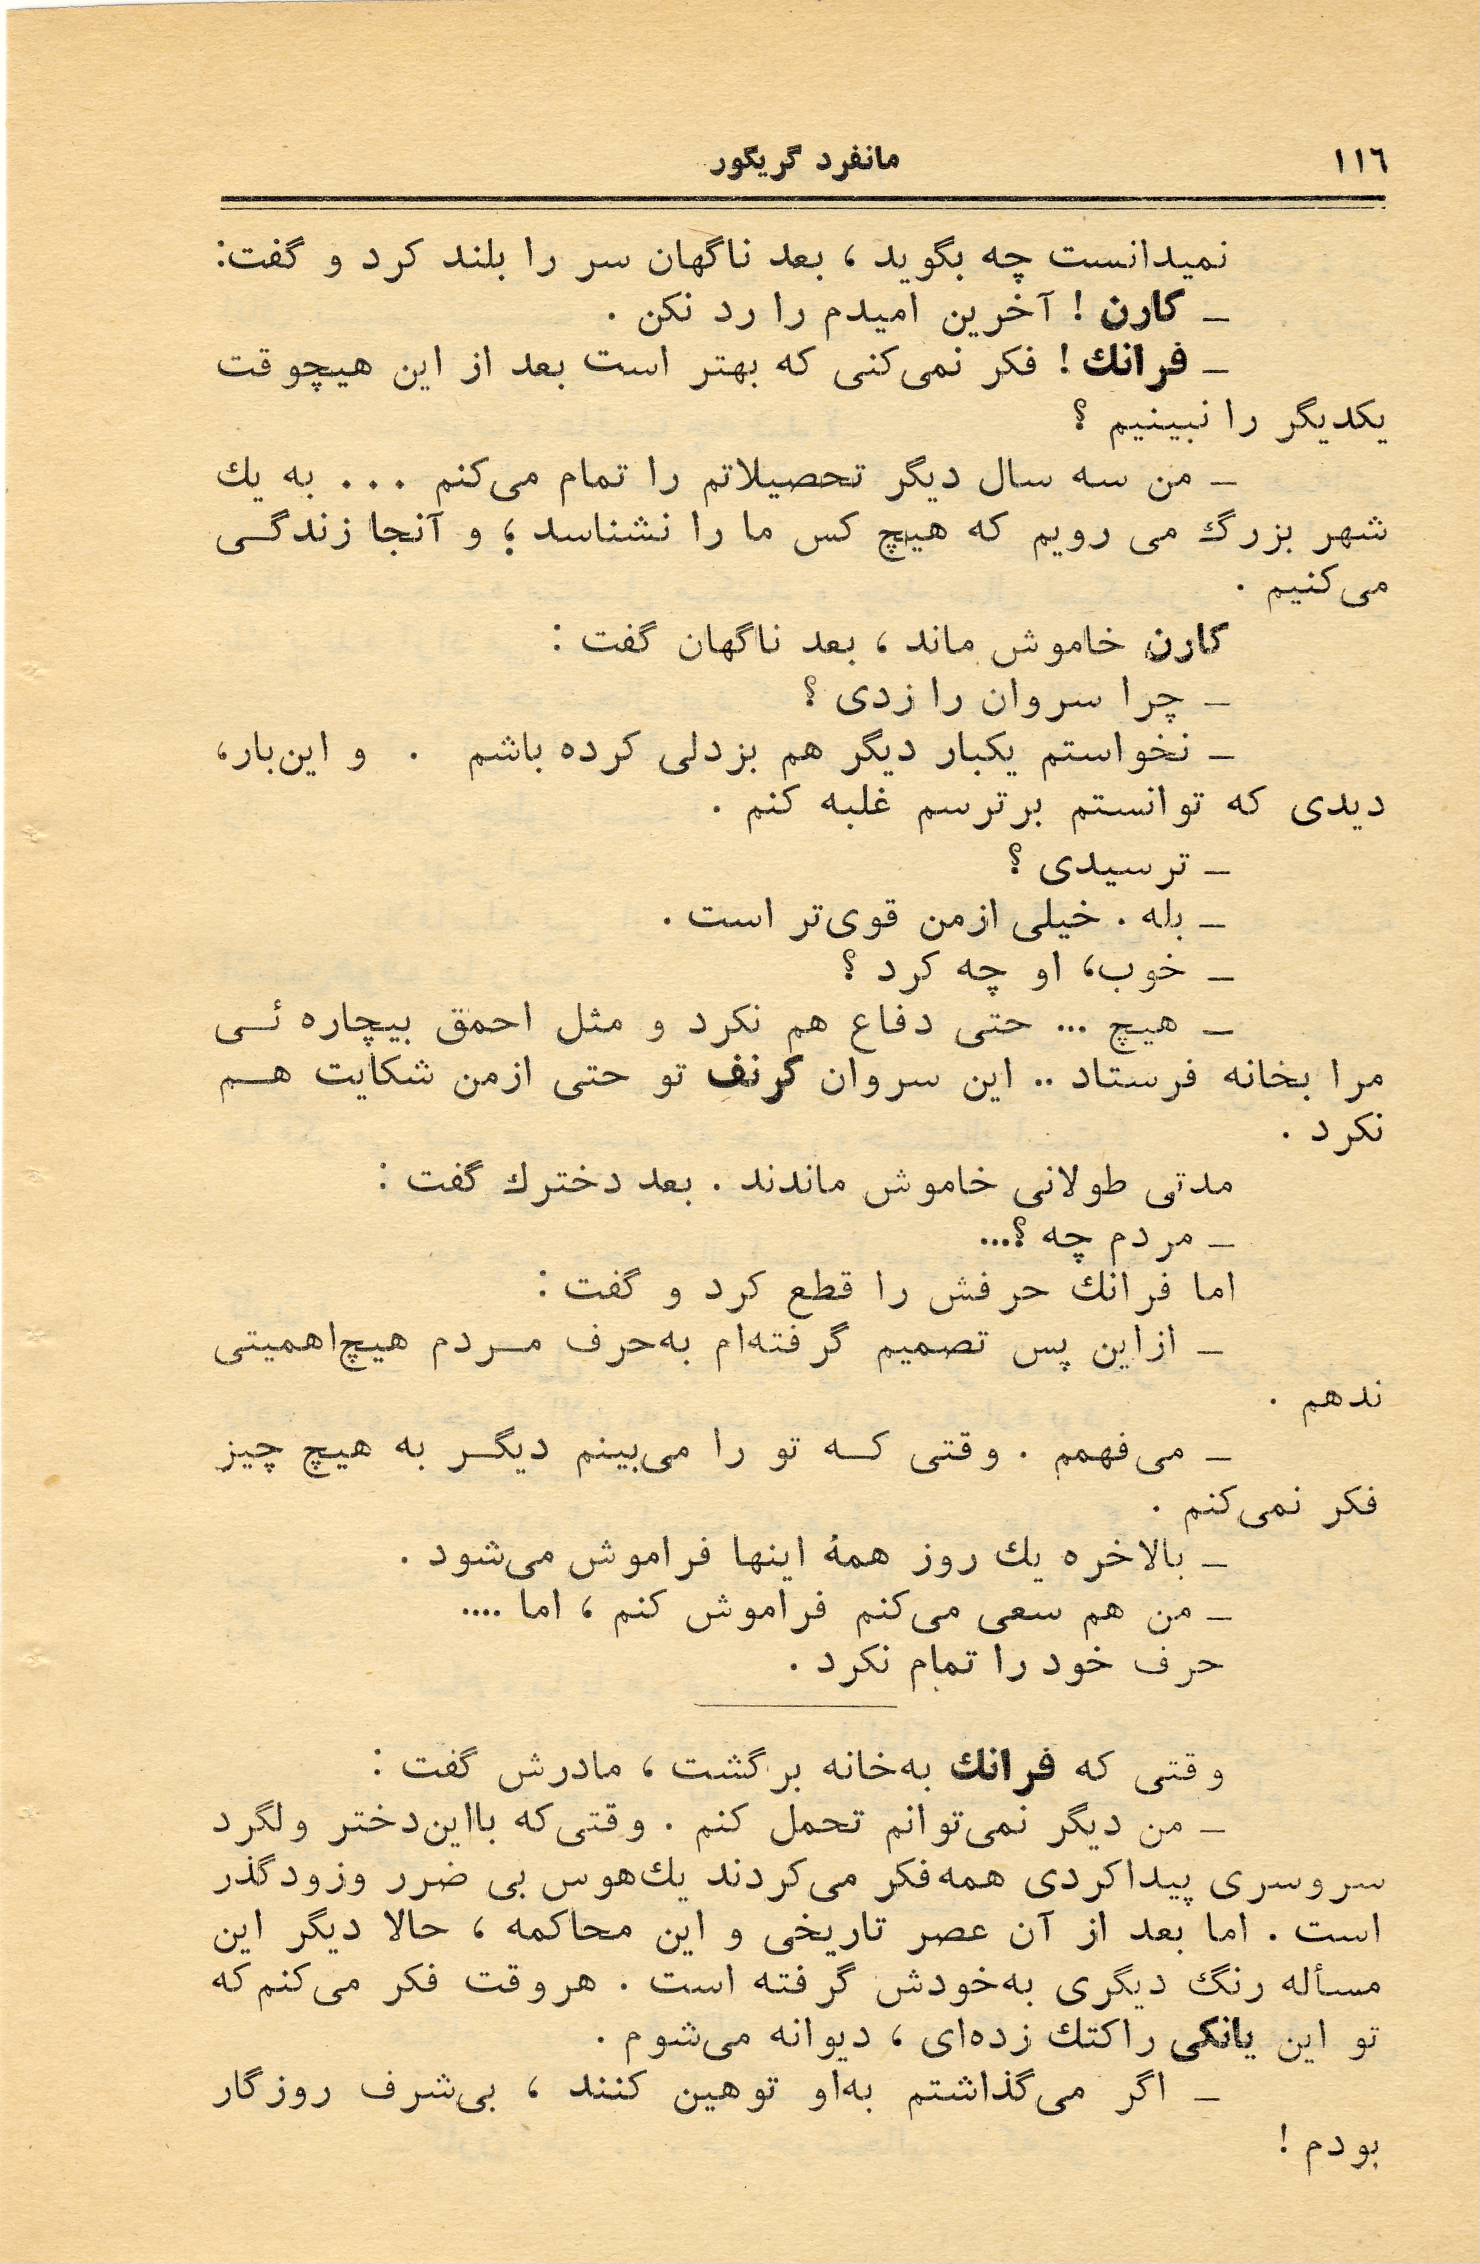 ١١٦
مانفرد گریگور
نمیدانست چه بگوید ، بعد ناگهان سر را بلند کرد و گفت:
ـ کارن ! آخرین امیدم را رد نکن .
ـ فرانك ! فکر نمی‌کنی که بهتر است بعد از این هیچوقت
یکدیگر را نبینیم ؟
ـ من سه سال دیگر تحصیلاتم را تمام می‌کنم ... به یك
شهر بزرگ می رویم که هیچ کس ما را نشناسد ؛ و آنجا زندگـی
می‌کنیم .
کارن خاموش ماند ، بعد ناگهان گفت :
ـ چرا سروان را زدی ؟
ـ نخواستم یکبار دیگر هم بزدلی کرده باشم . و این‌بار،
دیدی که توانستم برترسم غلبه کنم .
ـ ترسیدی ؟
ـ بله . خیلی ازمن قوی‌تر است .
ـ خوب، او چه کرد ؟
ـ هیچ ... حتی دفاع هم نکرد و مثل احمق بیچاره ئـی
مرا بخانه فرستاد .. این سروان کرنف تو حتی ازمن شکایت هـم
نکرد .
مدتی طولانی خاموش ماندند . بعد دخترك گفت :
ـ مردم چه ؟...
اما فرانك حرفش را قطع کرد و گفت :
ـ ازاین پس تصمیم گرفته‌ام به‌حرف مـردم هیچ‌اهمیتی
ندهم .
ـ می‌فهمم . وقتی کـه تو را می‌بینم دیگـر به هیچ چیز
فکر نمی‌کنم .
ـ بالاخره یك روز همهٔ اینها فراموش می‌شود .
ـ من هم سعی می‌کنم فراموش کنم ، اما ....
حرف خود را تمام نکرد .
وقتی که فرانك به‌خانه برگشت ، مادرش گفت :
ـ من دیگر نمی‌توانم تحمل کنم . وقتی‌که بااین‌دختر ولگرد
سروسری پیداکردی همه‌فکر می‌کردند یك‌هوس بی ضرر وزودگذر
است . اما بعد از آن عصر تاریخی و این محاکمه ، حالا دیگر این
مسأله رنگ دیگری به‌خودش گرفته است . هروقت فکر می‌کنم‌که
تو این یانکی راکتك زده‌ای ، دیوانه می‌شوم .
ـ اگر می‌گذاشتم به‌او توهین کنند ، بی‌شرف روزگار
بودم !